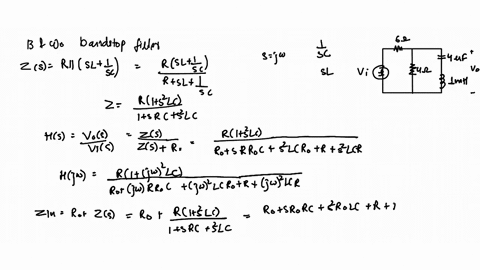 B & ω0 bandstop filter
Z(s) = R || (SL + 1/SC) = R(SL + 1/SC) / R + SL + 1/SC
Z = R(1+s²LC) / 1+SRC+s²LC
H(s) = V0(s)/Vi(s) = Z(s) / Z(s) + R0 = R(1+s²LC) / R0 + SRR0C + s²LCR0 + R + s²LCR
H(jω) = R(1+(jω)²LC) / R0 + (jω)RR0C + (jω)²LCR0 + R + (jω)²LCR
Zin = R0 + Z(s) = R0 + R(1+s²LC) / 1+SRC+s²LC = R0 + SR0RC + s²R0LC + R +
S=jω
1/SC
SL
6Ω
4Ω
4μF
1mH
Vi
+
V0
-